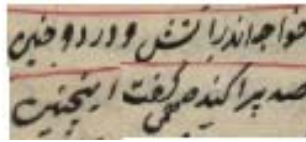 خواجه اندر آتش و درد و حنین
صد پراکنده همی گفت اینچنین